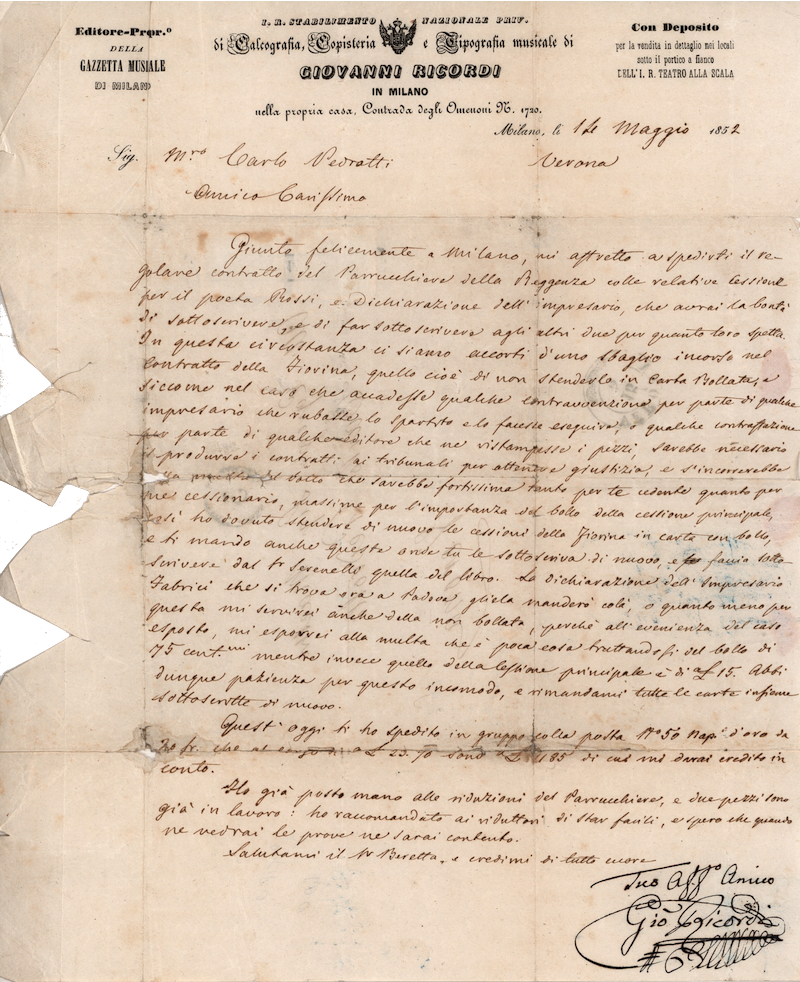 Editore-Propr.º
DELLA
GAZZETTA MUSIALE
DI MILANO
I. R. STABILIMENTO NAZIONALE PRIV.
di Calcografia, Copisteria e Tipografia musicale di
GIOVANNI RICORDI
IN MILANO
nella propria casa, Contrada degli Omenoni N. 1720.
Con Deposito
per la vendita in dettaglio nei locali
sotto il portico a fianco
DELL'I. R. TEATRO ALLA SCALA
Milano, li Maggio 1852
Sig. Mro Carlo Pedrotti Verona
Amico Carissimo
Giunto felicemente a Milano, mi affretto a spedirti il re-
golare contratto del Parrucchiere della Reggenza colle relative Cessioni
per il poeta Rossi, e Dichiarazione dell'impresario, che avrai la bontà
di sottoscrivere, e di far sottoscrivere agli altri due per quanto loro spetta.
In questa circostanza ci siamo accorti d'uno sbaglio incorso nel
Contratto della Fiorina, quello cioè di non stenderlo in Carta Bollata, e
siccome nel caso che accadesse qualche contravvenzione per parte di qualche
impresario che rubasse lo spartito e lo facesse eseguire, o qualche contraffazione
per parte di qualche editore che ne ristampasse i pezzi, sarebbe necessario
produrre i contratti ai tribunali per ottenere giustizia, e s'incorrerebbe
che sarebbe fortissima tanto per te cedente quanto per
me cessionario, massime per l'importanza del bollo della cessione principale,
così ho dovuto stendere di nuovo le cessioni della Fiorina in carta con bollo,
e ti mando anche queste onde tu le sottoscriva di nuovo, e facia sotto-
scrivere dal Sr Serenelli quella del libro. La dichiarazione dell'Impresario
Fabrici che si trova ora a Padova gliela manderò colà, o quanto meno per
questa mi servirei anche della non bollata, perchè all'evenienza del caso
esposto, mi esporrei alla multa che è poca cosa trattandosi del bollo di
75 cent.mi mentre invece quello della Cessione principale è di aL 15. Abbi
dunque pazienza per questo incomodo, e rimandami tutte le carte insieme
sottoscritte di nuovo.
Quest'oggi ti ho spedito in gruppo colla posta Nº 50 Nap.i d'oro da
20 fr. che al corso di aL 23.70 sono aL 1185 di cui mi darai credito in
conto.
Ho già posto mano alle riduzioni del Parrucchiere, e due pezzi sono
già in lavoro: ho raccomandato ai riduttori di star facili, e spero che quando
ne vedrai le prove ne sarai contento.
Salutami il Sr Beretta, e credimi di tutto cuore
Tuo Affº Amico
Giò Ricordi